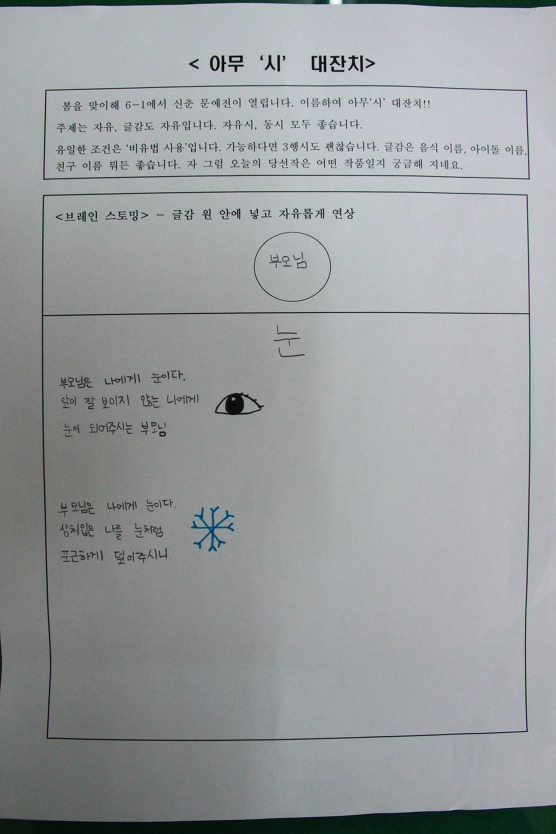 < 아무 ‘시’ 대잔치>
봄을 맞이해 6-1에서 신춘 문예전이 열립니다. 이름하여 아무‘시’ 대잔치!!
주제는 자유, 글감도 자유입니다. 자유시, 동시 모두 좋습니다.
유일한 조건은 ‘비유법 사용’입니다. 가능하다면 3행시도 괜찮습니다. 글감은 음식 이름, 아이돌 이름,
친구 이름 뭐든 좋습니다. 자 그럼 오늘의 당선작은 어떤 작품일지 궁금해 지네요.
<브레인 스토밍> - 글감 원 안에 넣고 자유롭게 연상
부모님
눈
부모님은 나에게 눈이다.
앞이 잘 보이지 않는 나에게
눈이 되어주시는 부모님
부모님은 나에게 눈이다.
상처입은 나를 눈처럼
포근하게 덮어주시니